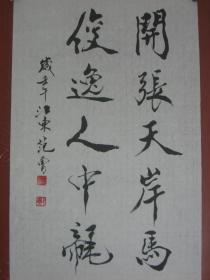 開張天岸馬
俊逸人中龍
歲壬午江東范曾